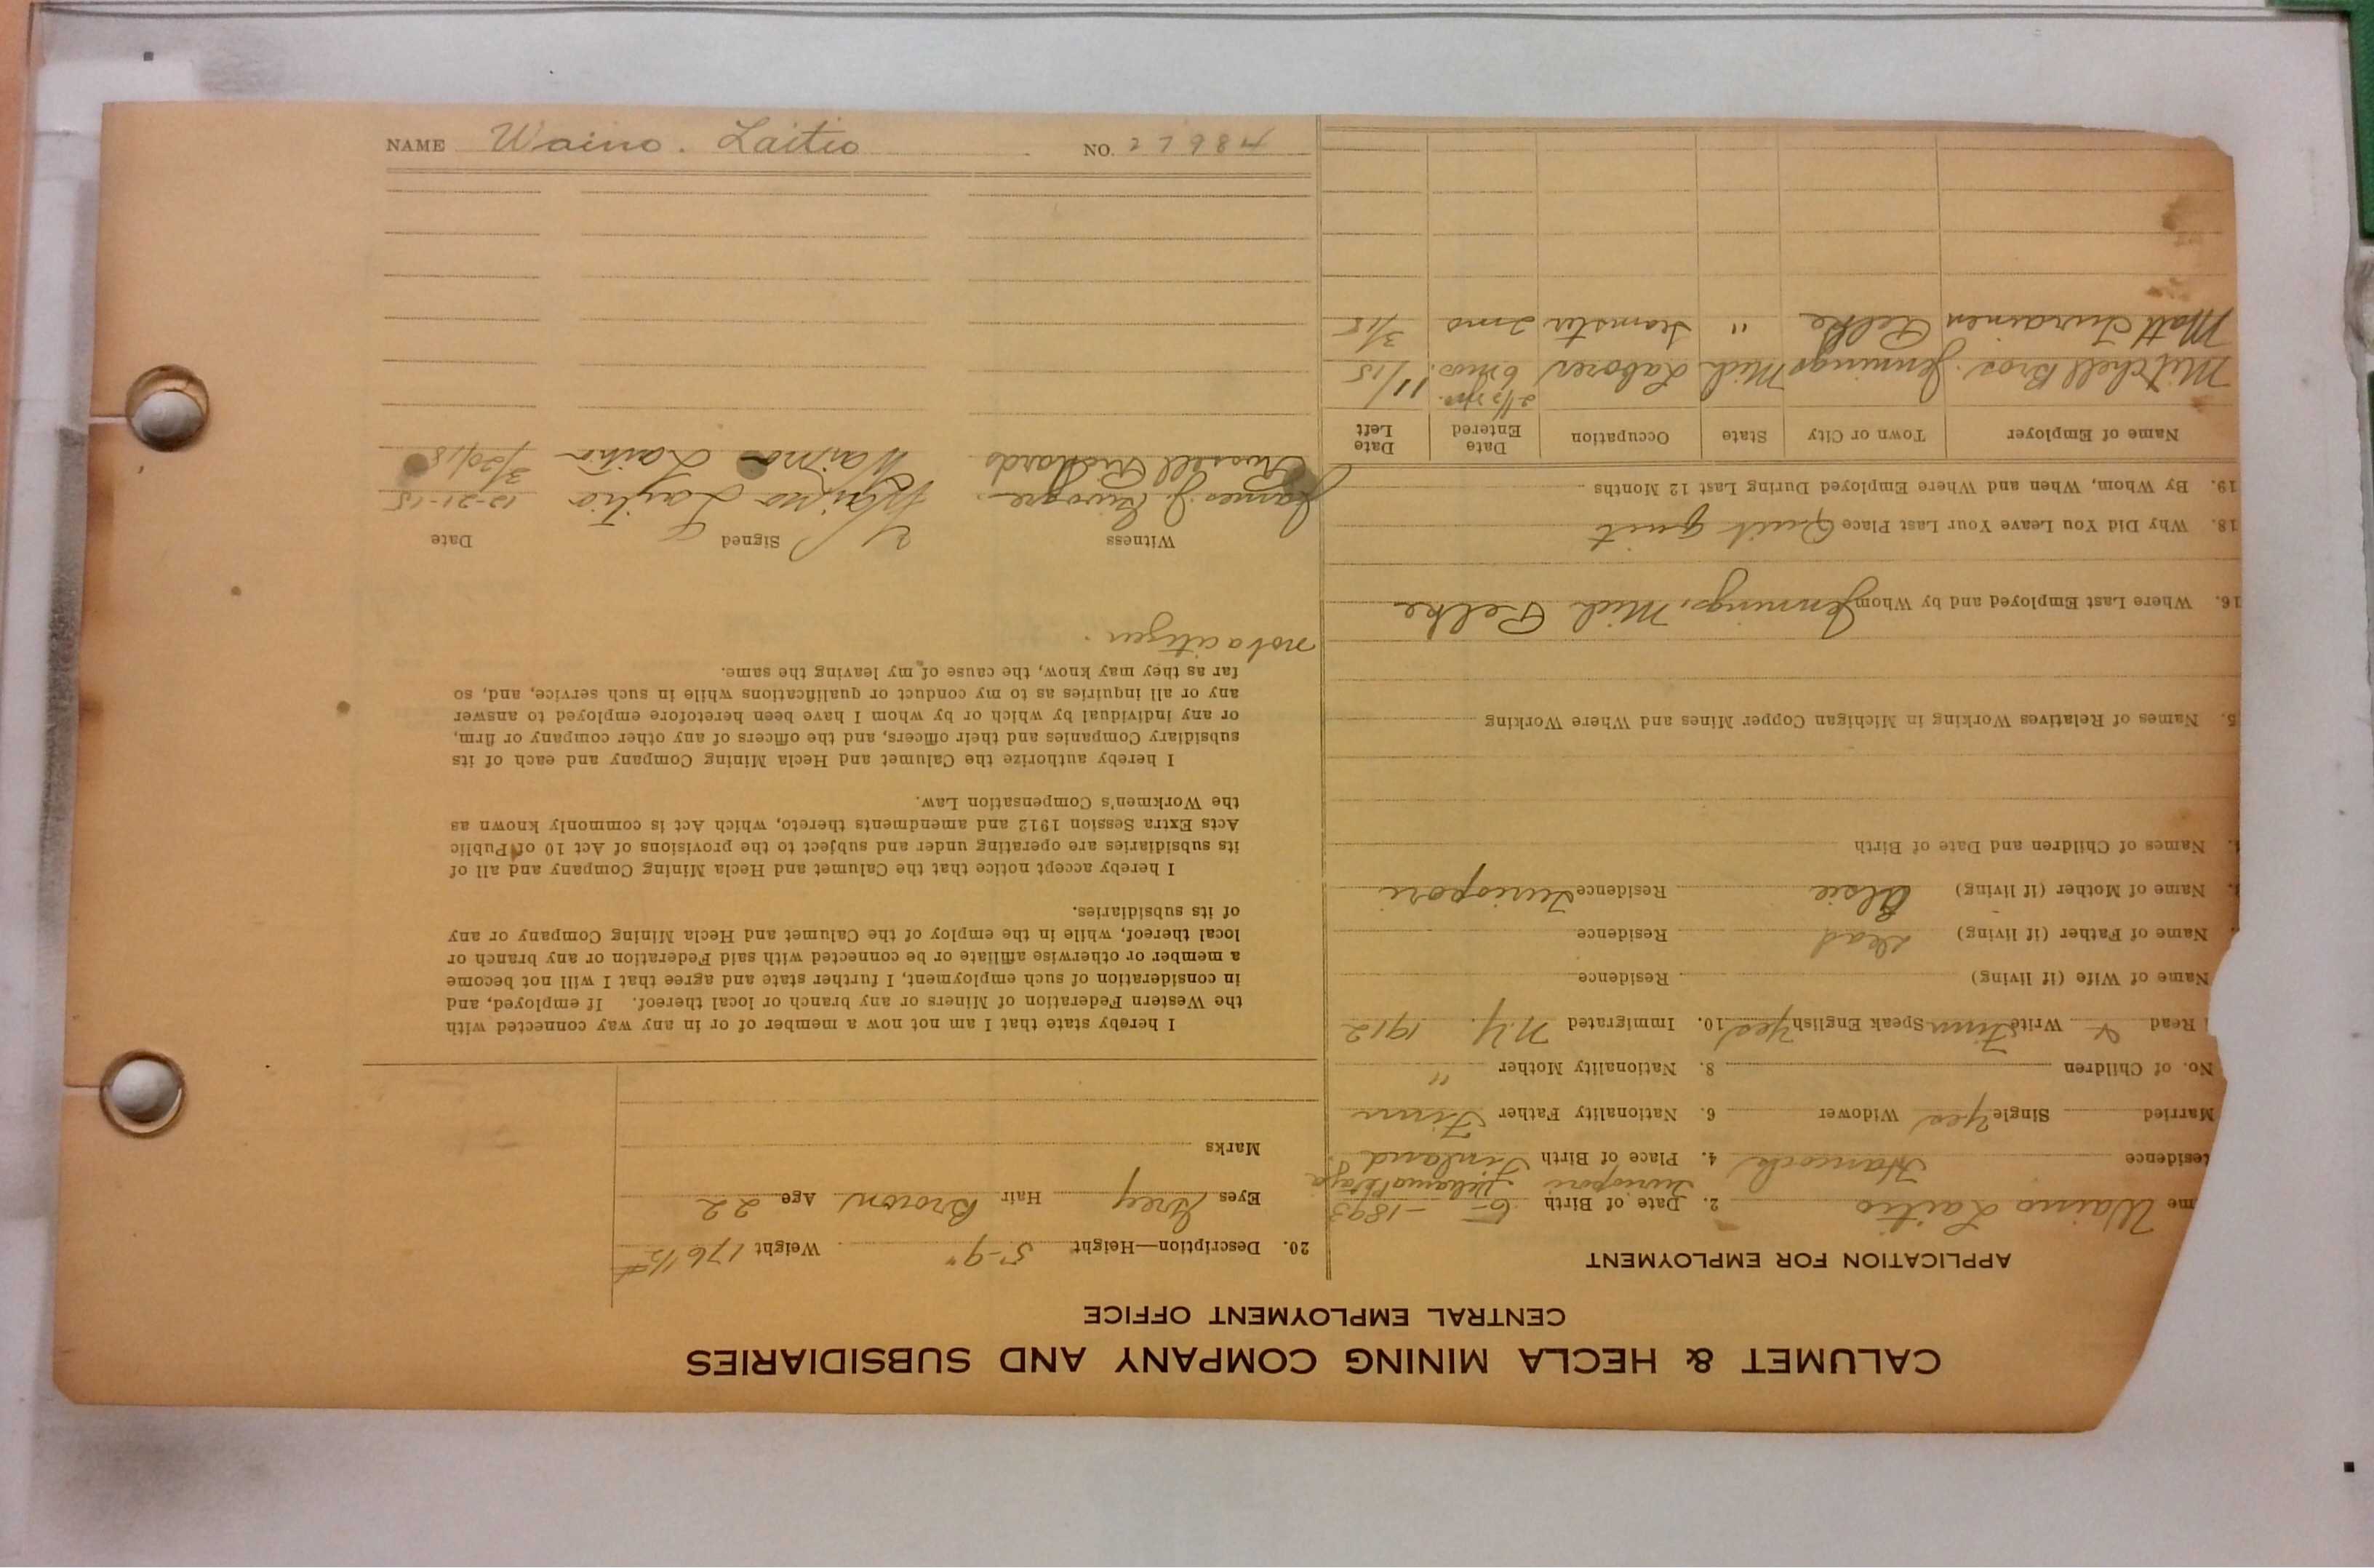 CALUMET & HECLA MINING COMPANY AND SUBSIDIARIES
CENTRAL EMPLOYMENT OFFICE
APPLICATION FOR EMPLOYMENT
me Waino Laitio 2. Date of Birth 6- -1893
esidence Hancock 4. Place of Birth Finland
Married Single Yes Widower 6. Nationality Father Finn
No. of Children 8. Nationality Mother "
Read & Write Finn Speak English Yes 10. Immigrated N.Y. 1912
Name of Wife (if living) Residence
Name of Father (if living) Dead Residence
Name of Mother (if living) Elsie Residence
Names of Children and Date of Birth
5. Names of Relatives Working in Michigan Copper Mines and Where Working
16. Where Last Employed and by Whom Jennings, Mich Pelke
18. Why Did You Leave Your Last Place Quit quit
19. By Whom, When and Where Employed During Last 12 Months
Name of Employer Town or City State Occupation Date Entered Date Left
Mitchell Bros. Jennings Mich Laborer 2 1/2 yrs. 6 mos. 11/15
Matt Pelke " Teamster 2 mo 3/18
20. Description—Height 5-9" Weight 176 1/2 #
Eyes Grey Hair Brown Age 22
Marks
I hereby state that I am not now a member of or in any way connected with
the Western Federation of Miners or any branch or local thereof. If employed, and
in consideration of such employment, I further state and agree that I will not become
a member or otherwise affiliate or be connected with said Federation or any branch or
local thereof, while in the employ of the Calumet and Hecla Mining Company or any
of its subsidiaries.
I hereby accept notice that the Calumet and Hecla Mining Company and all of
its subsidiaries are operating under and subject to the provisions of Act 10 of Public
Acts Extra Session 1912 and amendments thereto, which Act is commonly known as
the Workmen's Compensation Law.
I hereby authorize the Calumet and Hecla Mining Company and each of its
subsidiary Companies and their officers, and the officers of any other company or firm,
or any individual by which or by whom I have been heretofore employed to answer
any or all inquiries as to my conduct or qualifications while in such service, and, so
far as they may know, the cause of my leaving the same.
not a citizen.
Witness Signed Date
James J. Waino Laitio 12-21-15
Russell Richards Waino Laitio 3/20/18
NAME Waino. Laitio NO. 27984